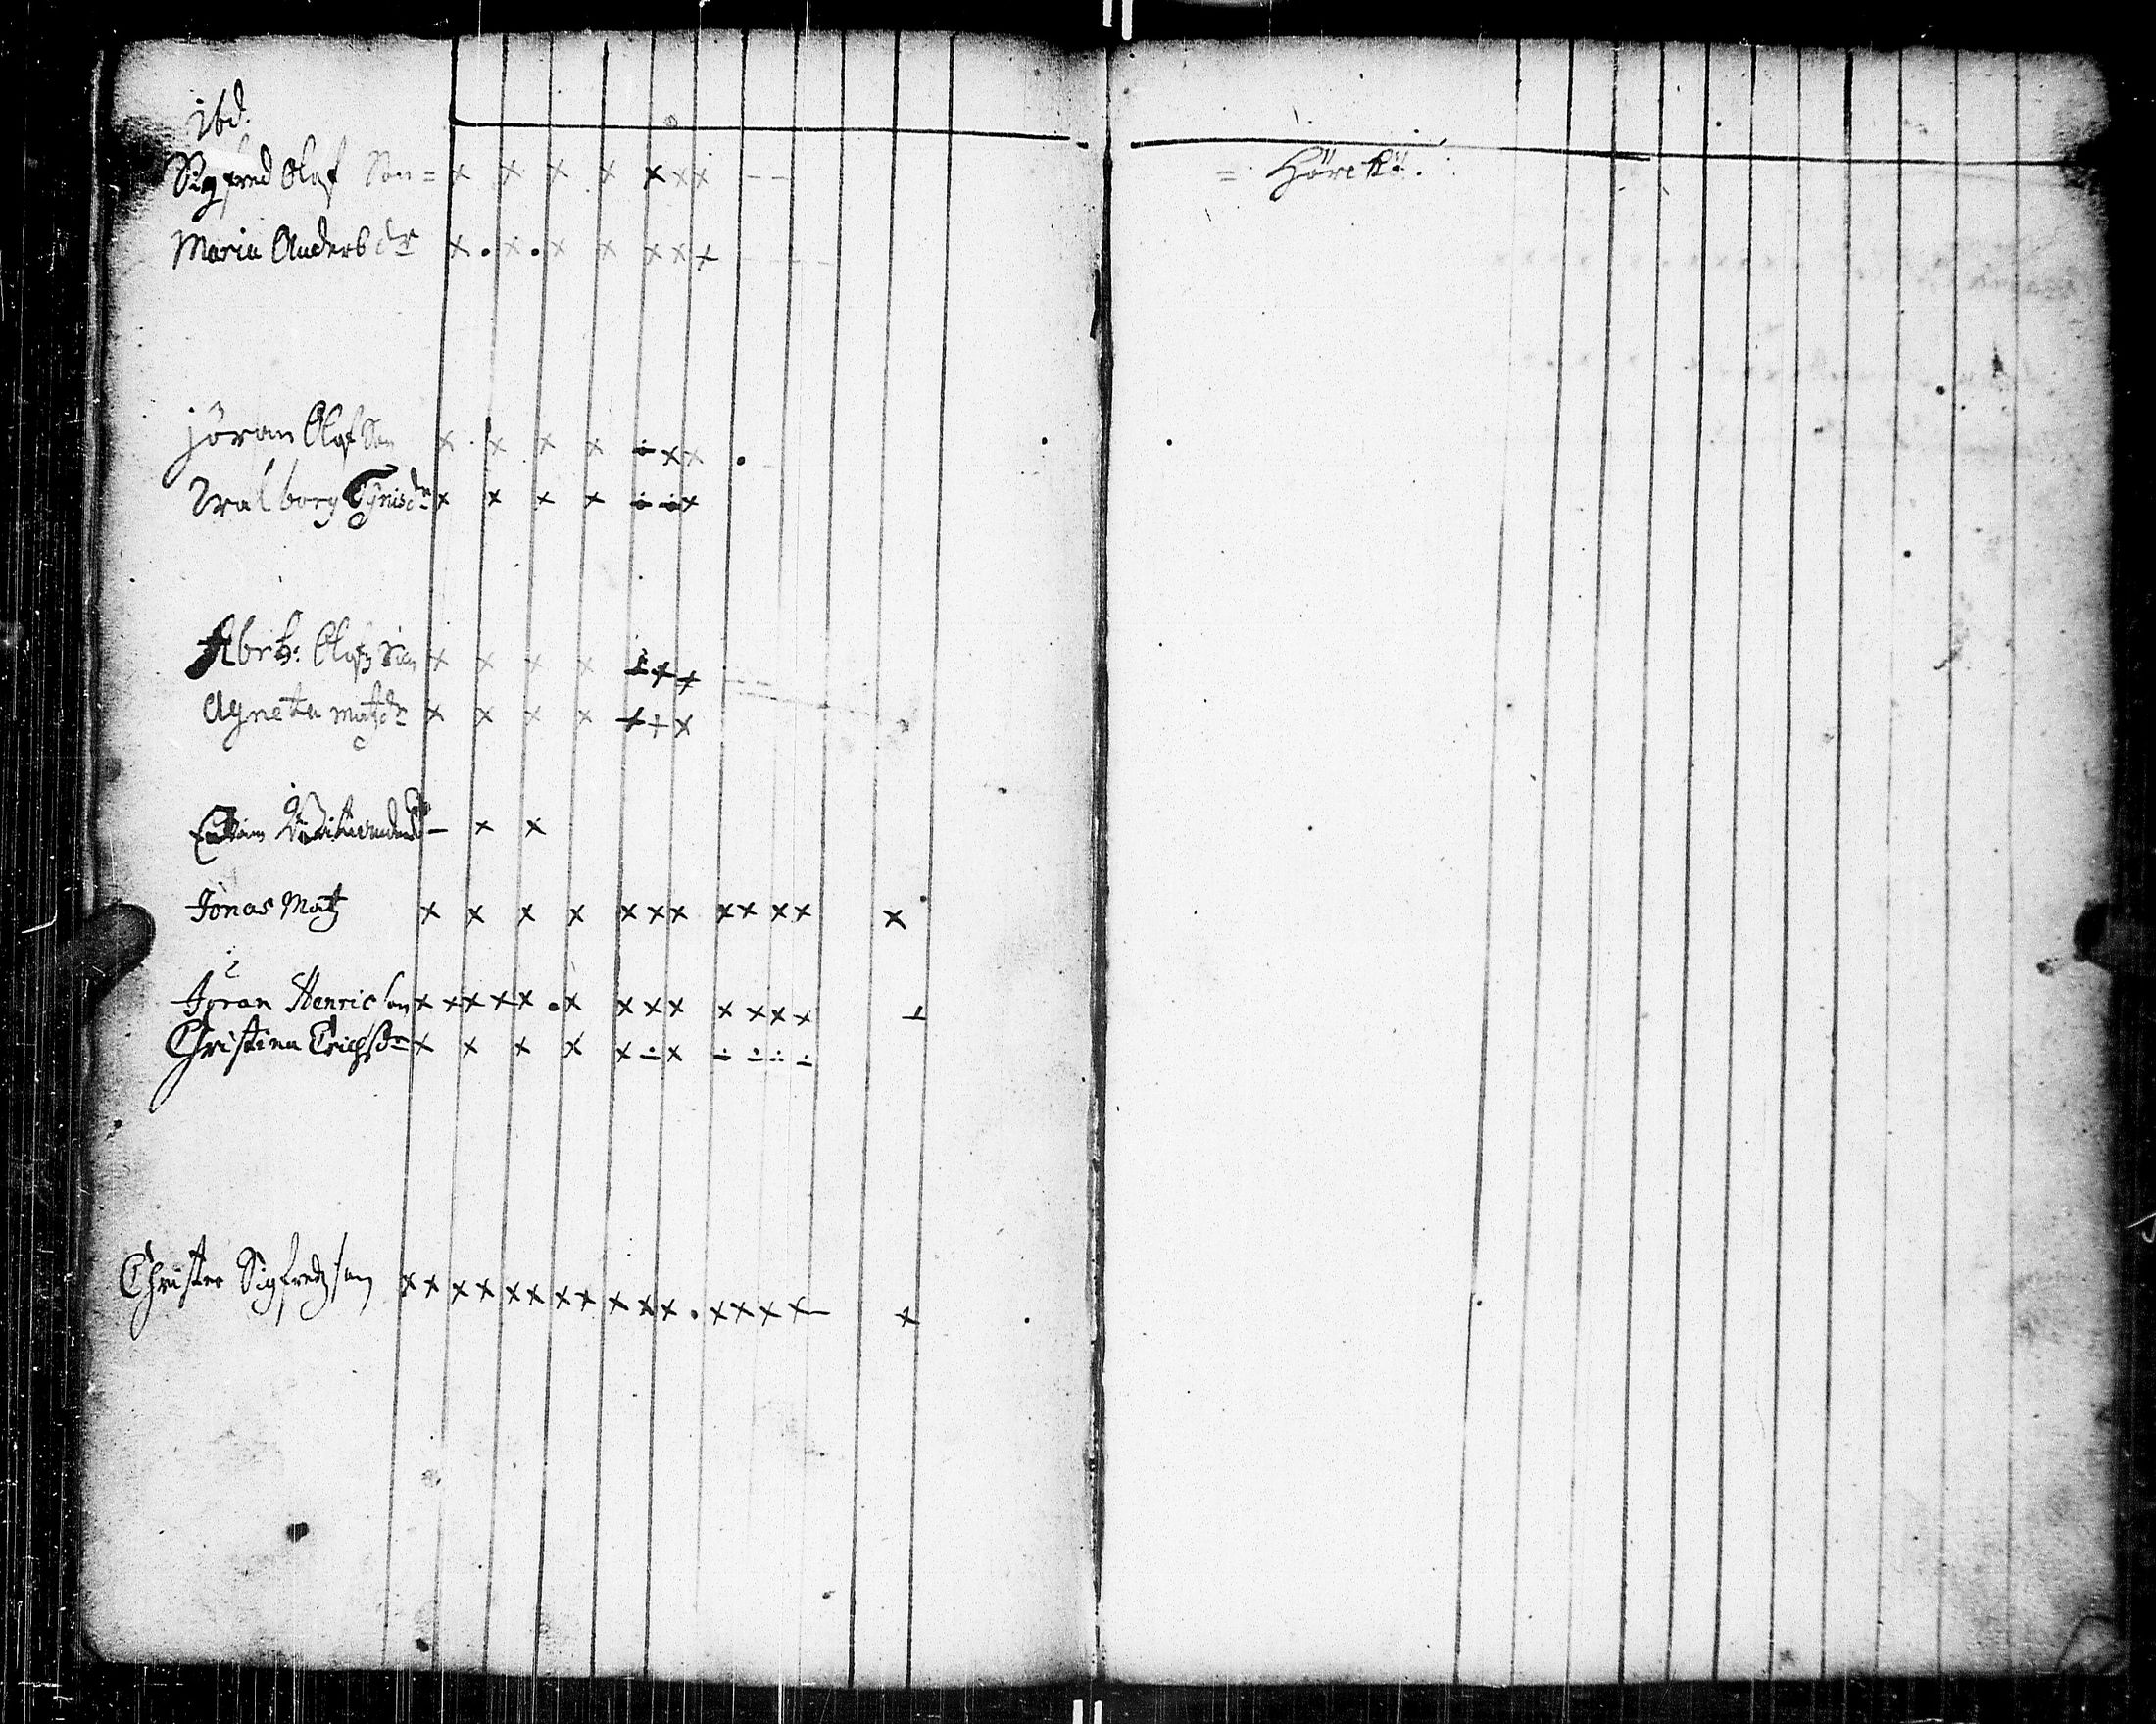 ibd.
Sigfred Olof Son = x x x x x x x - -
Maria Anders dr x . x . x x x x x
Jöran Olof Son x x x x ÷ x x .
Walborg Tÿnisdr x x x x ÷ ÷ x
Abrh: Olofz Son x x x x ÷ x x
Agneta matzdr x x x x x + x
- x x
Jonas Matz x x x x x x x x x x x x
Jöran Henricson x x x x x . x x x x x x x x
Christina Erichsdr x x x x x ÷ x ÷ ÷ ÷ ÷
Christer Sigfredz son x x x x x x x x x x x . x x x x - x
=